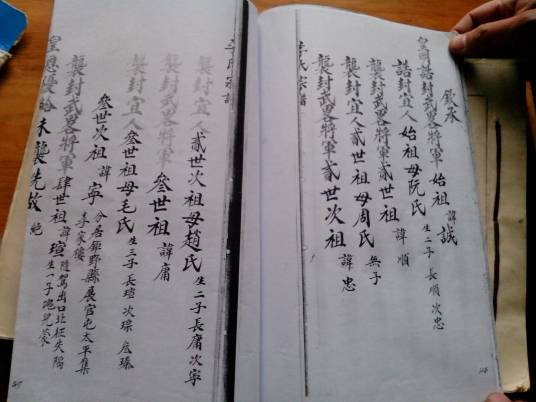 欽承
皇明誥封武畧將軍 始祖 諱誠
誥封宜人 始祖母阮氏 生二子 長順 次忠
襲封武畧將軍貳世祖 諱順
襲封宜人貳世祖母周氏 無子
襲封武畧將軍貳世次祖 諱忠
李氏宗譜
李氏宗譜
襲封宜人貳世次祖母趙氏 生二子長庸次寧
襲封武畧將軍 叄世祖 諱庸
襲封宜人 叄世祖母毛氏 生三子長瑄次琛叄瑧
叄世次祖 諱寧 分居鉅野縣展官屯太平集
李家樓
襲封武畧將軍肆世祖 諱瑄 隨駕出口北征失陷
生一子
皇恩優給未襲先故 絶